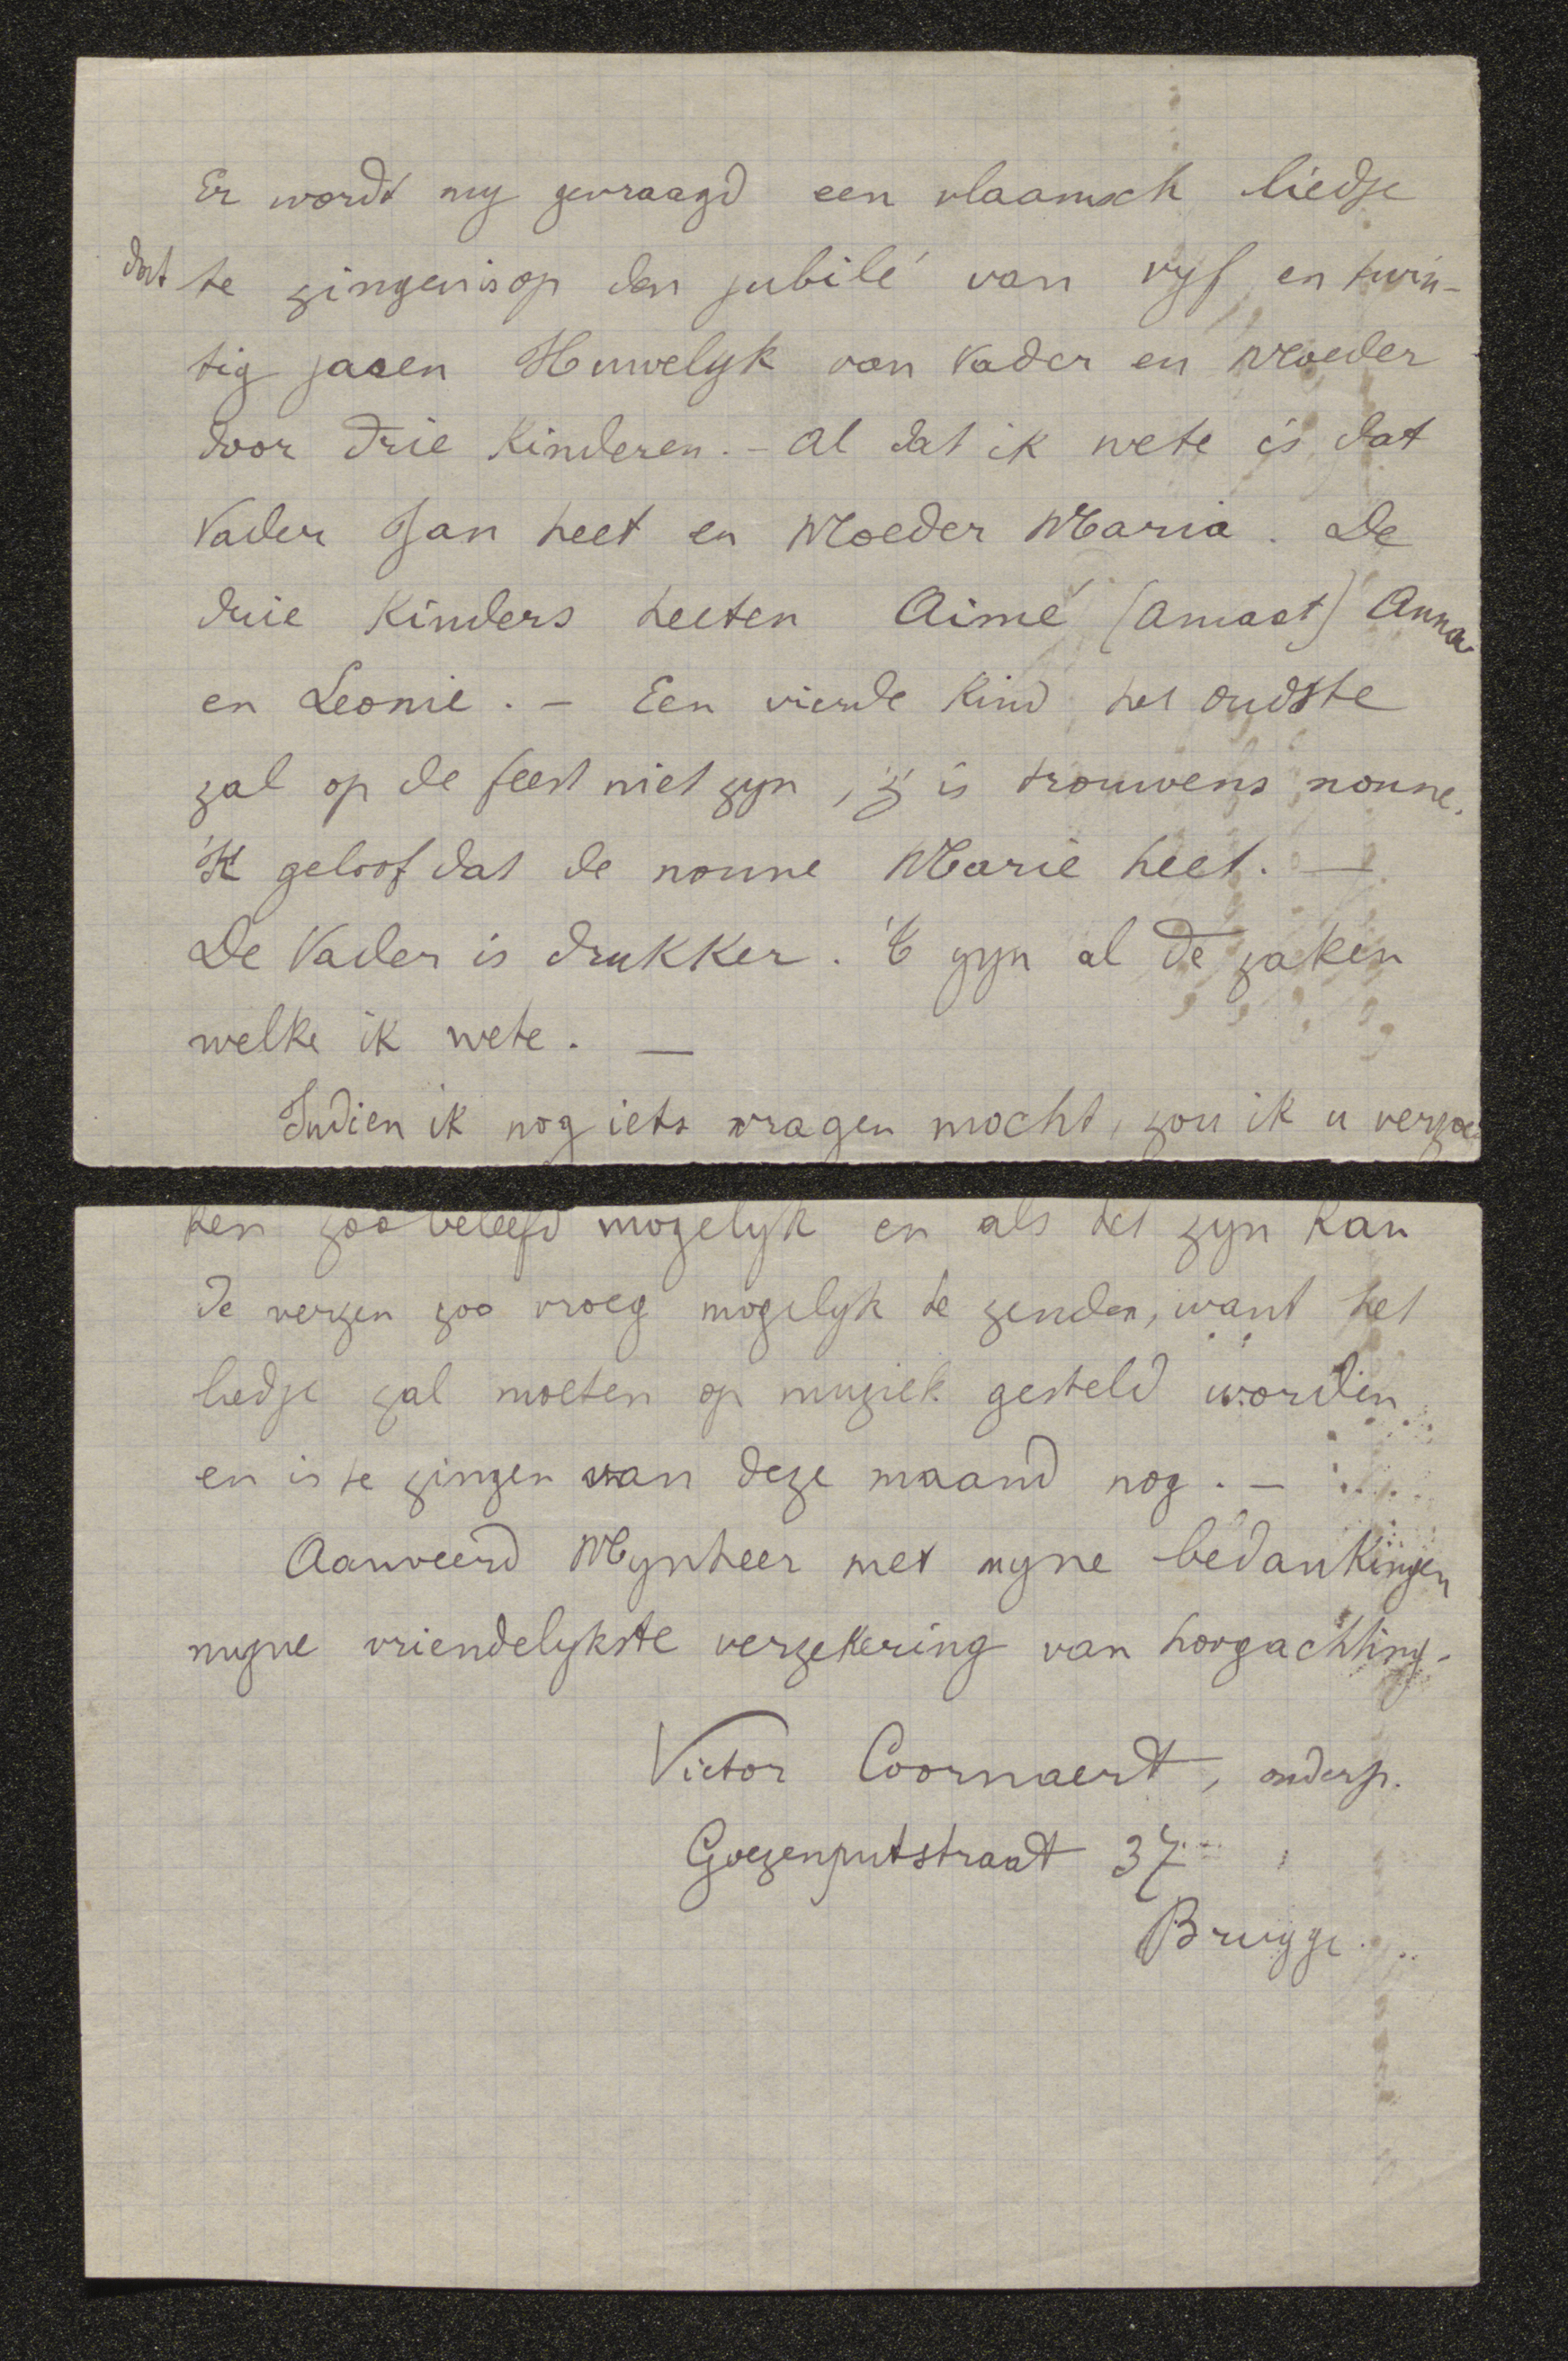 Er wordt my gevraagd een vlaamsch liedje
dat te zingen is op den jubilé van vyf en twin-
tig jaren Huwelyk van Vader en Moeder
door drie Kinderen. - Al dat ik wete is dat
Vader Jan heet en Moeder Maria. De
drie Kinders heeten Aimé (Amaat) Anna
en Leonie. - Een vierde Kind het oudste
zal op de feest niet zyn, z' is trouwens nonne.
'K geloof dat de nonne Marie heet. —
De Vader is drukker. 'T zyn al de zaken
welke ik wete. —
Indien ik nog iets vragen mocht, zou ik u verzoe-
ken zoo beleefd mogelyk en als het zyn kan
de verzen zoo vroeg mogelyk te zenden, want het
liedje zal moeten op muziek gesteld worden
en is te zingen van deze maand nog. -
Aanveerd Mynheer met myne bedankingen
myne vriendelykste verzekering van hoogachting.
Victor Coornaert, onderp.
Goezenputstraat 37
Brugge.